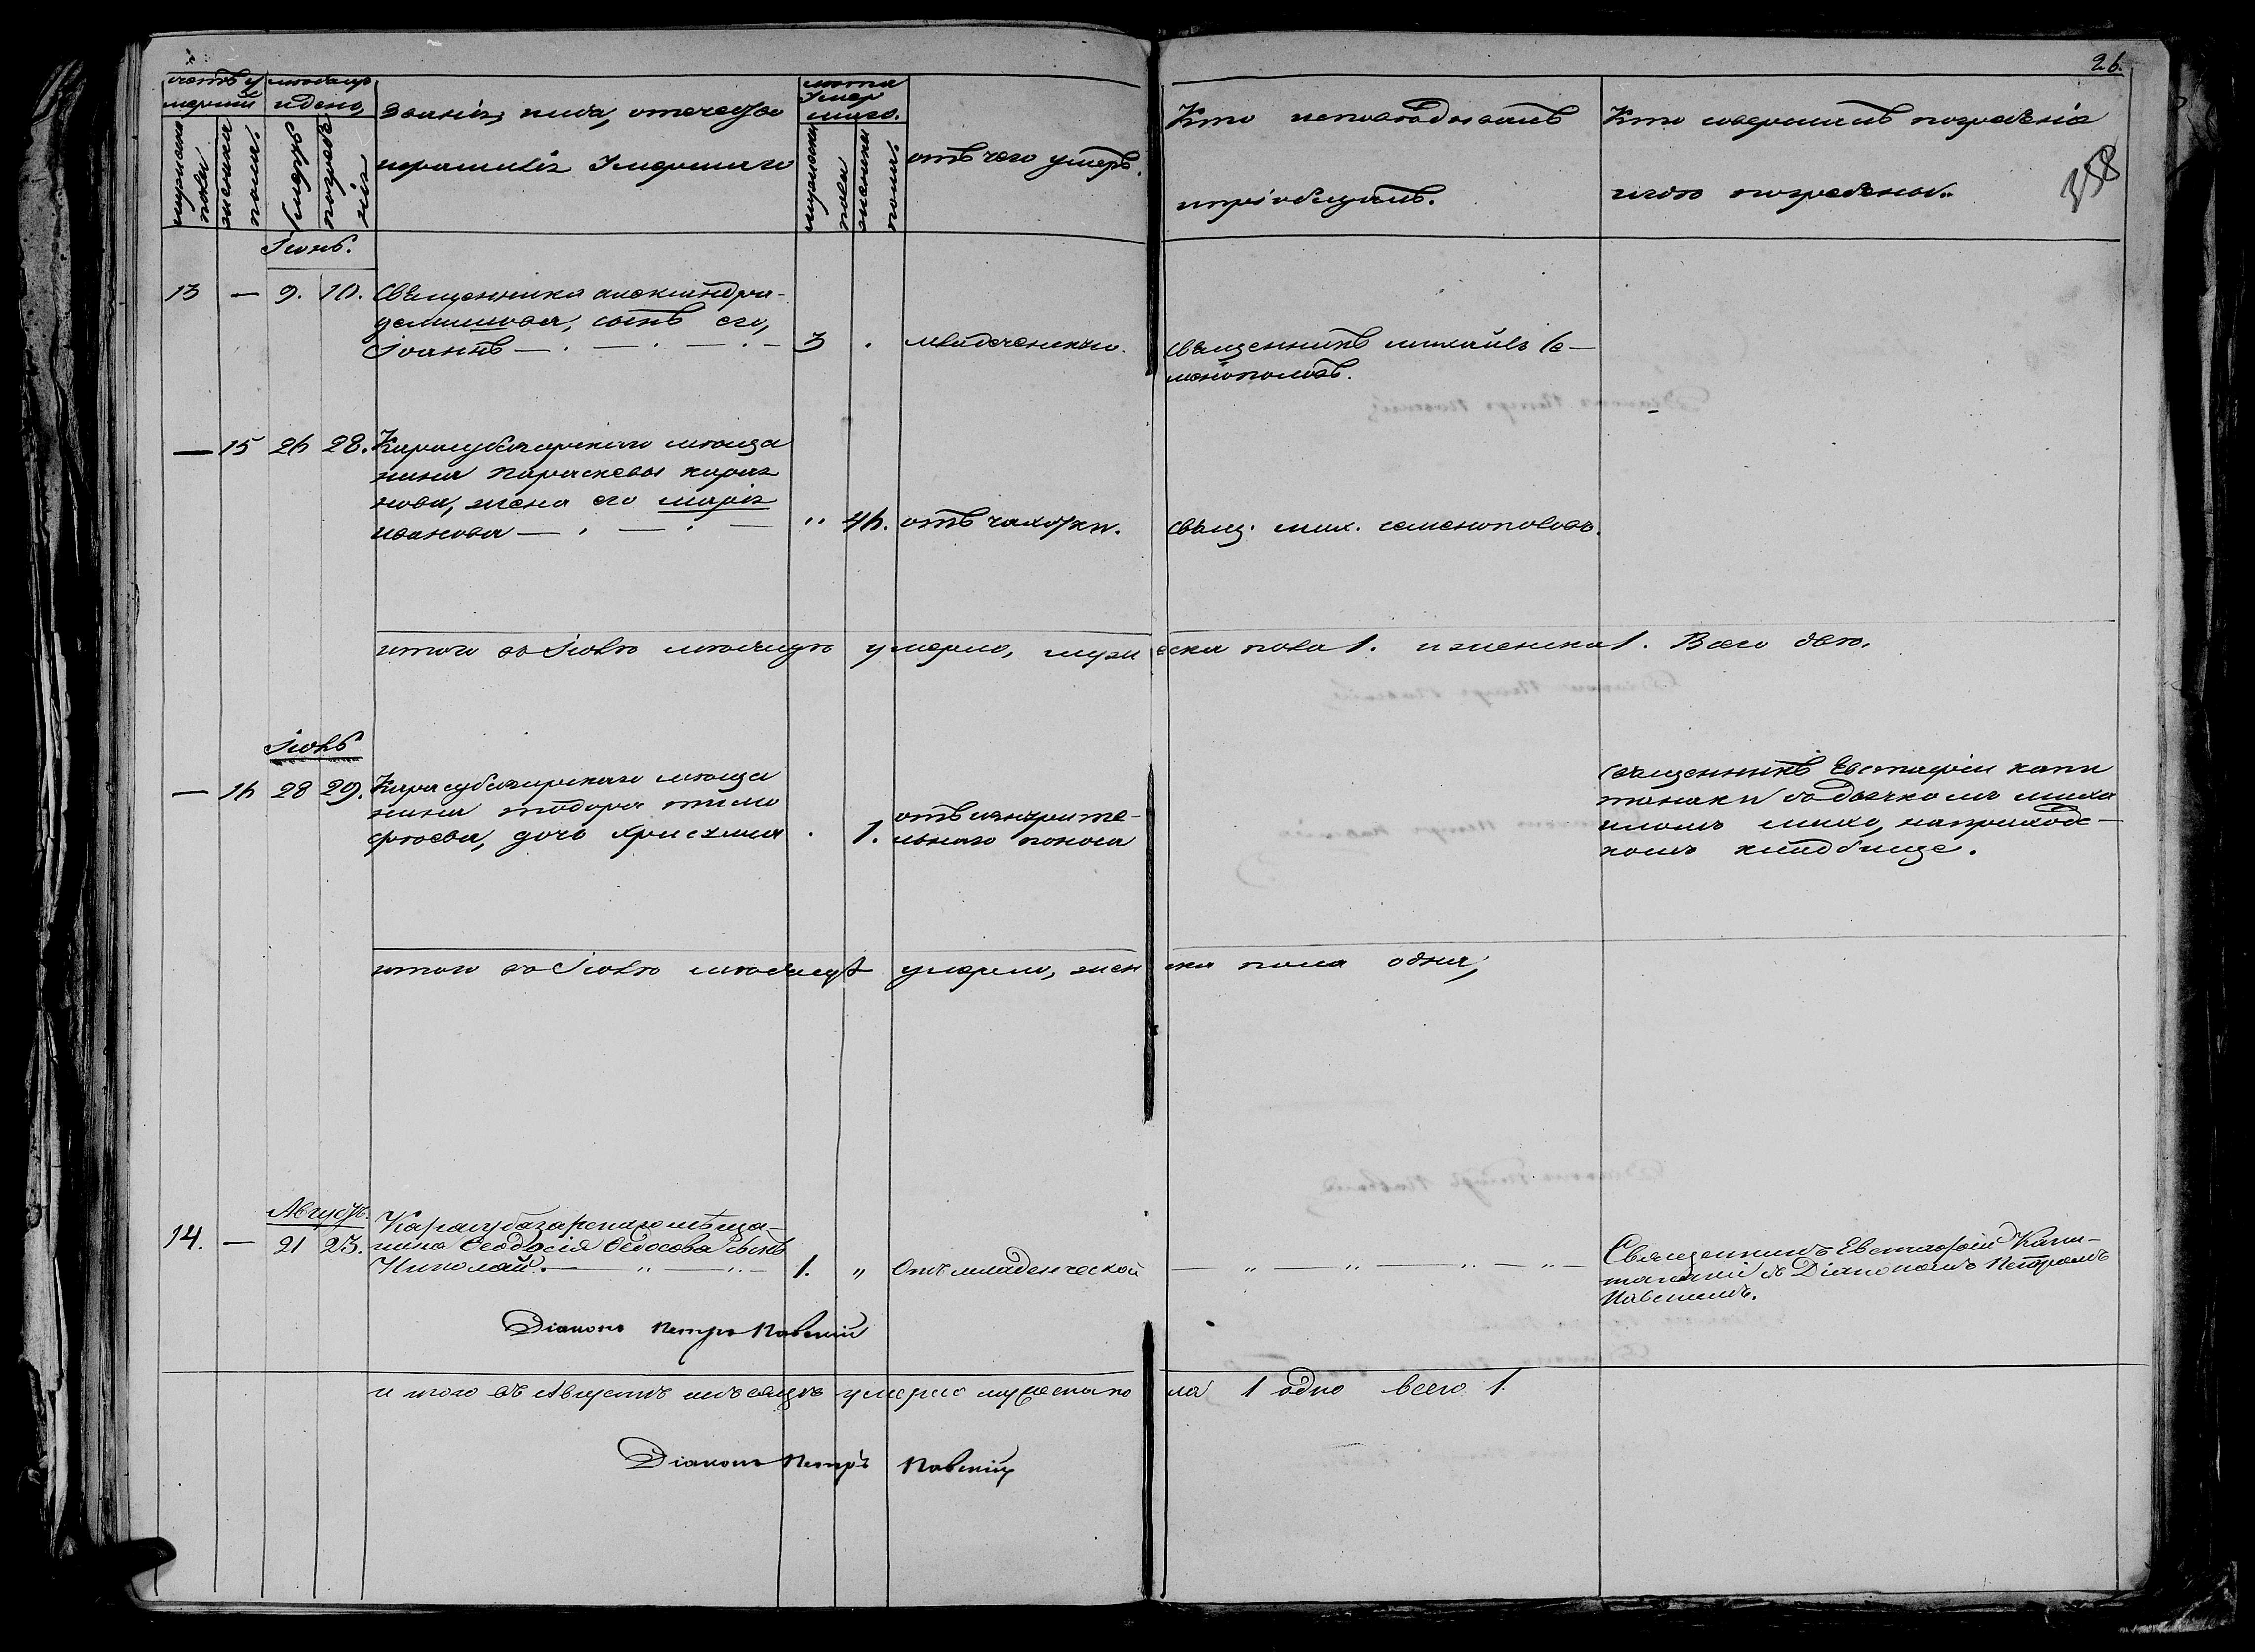 26.
358
мѣсяцъ
и день,
званія, имя, отечество
и фамилія Умершаго
лѣта
Умер
шаго.
отъ чего умеръ.
Кто исповѣдовалъ
и пріобщалъ.
Кто совершалъ погребенія
и гдѣ погребены.
мужеска
пола
женска
пола.
Умерт
погребе
нія
мужеска
пола
женска
пола.
Іюнь.
13 — 9. 10. Священника александра
сынъ его,
Іоаннъ — 3 . младенческ.
священникъ михаилъ Се—
менополовъ.
— 15 26 28. Карасубазарскаго мѣща
нина Параскевы караз
нова, жена его марія
иванова — " 46. отъ чахотки. свящ. мих. семенополовъ.
итого въ Іюнѣ мѣсяцѣ умерло, мужеска пола 1. и женска 1. Всего двѣ.
Іюль
— 16 28 29. Карасубазарскаго мѣща
нина тодора тимо
фѣева, дочь христина . 1. отъ изнурите-
льнаго поноса
священникъ Евстафіи капи
танаки со дьячкомъ миха
иломъ михо, на приходс—
комъ кладбище.
итого въ Іюлѣ мѣсяцѣ умерло, женска пола одна,
Августъ.
14. — 21 23. Карасубазарскаго мѣща—
нина Ѳеодосія Ѳедосова сынъ
Николай. — " — " — 1. " Отъ младенческой — " — " — " — " —
Священникъ Евстафій Капи—
танаки съ Діакономъ Петромъ
Павскимъ.
Діаконъ Петръ Павскій
и того въ Августѣ мѣсяцѣ умерло мужеска пола 1 одно всего 1.
Діаконъ Петръ Павскій